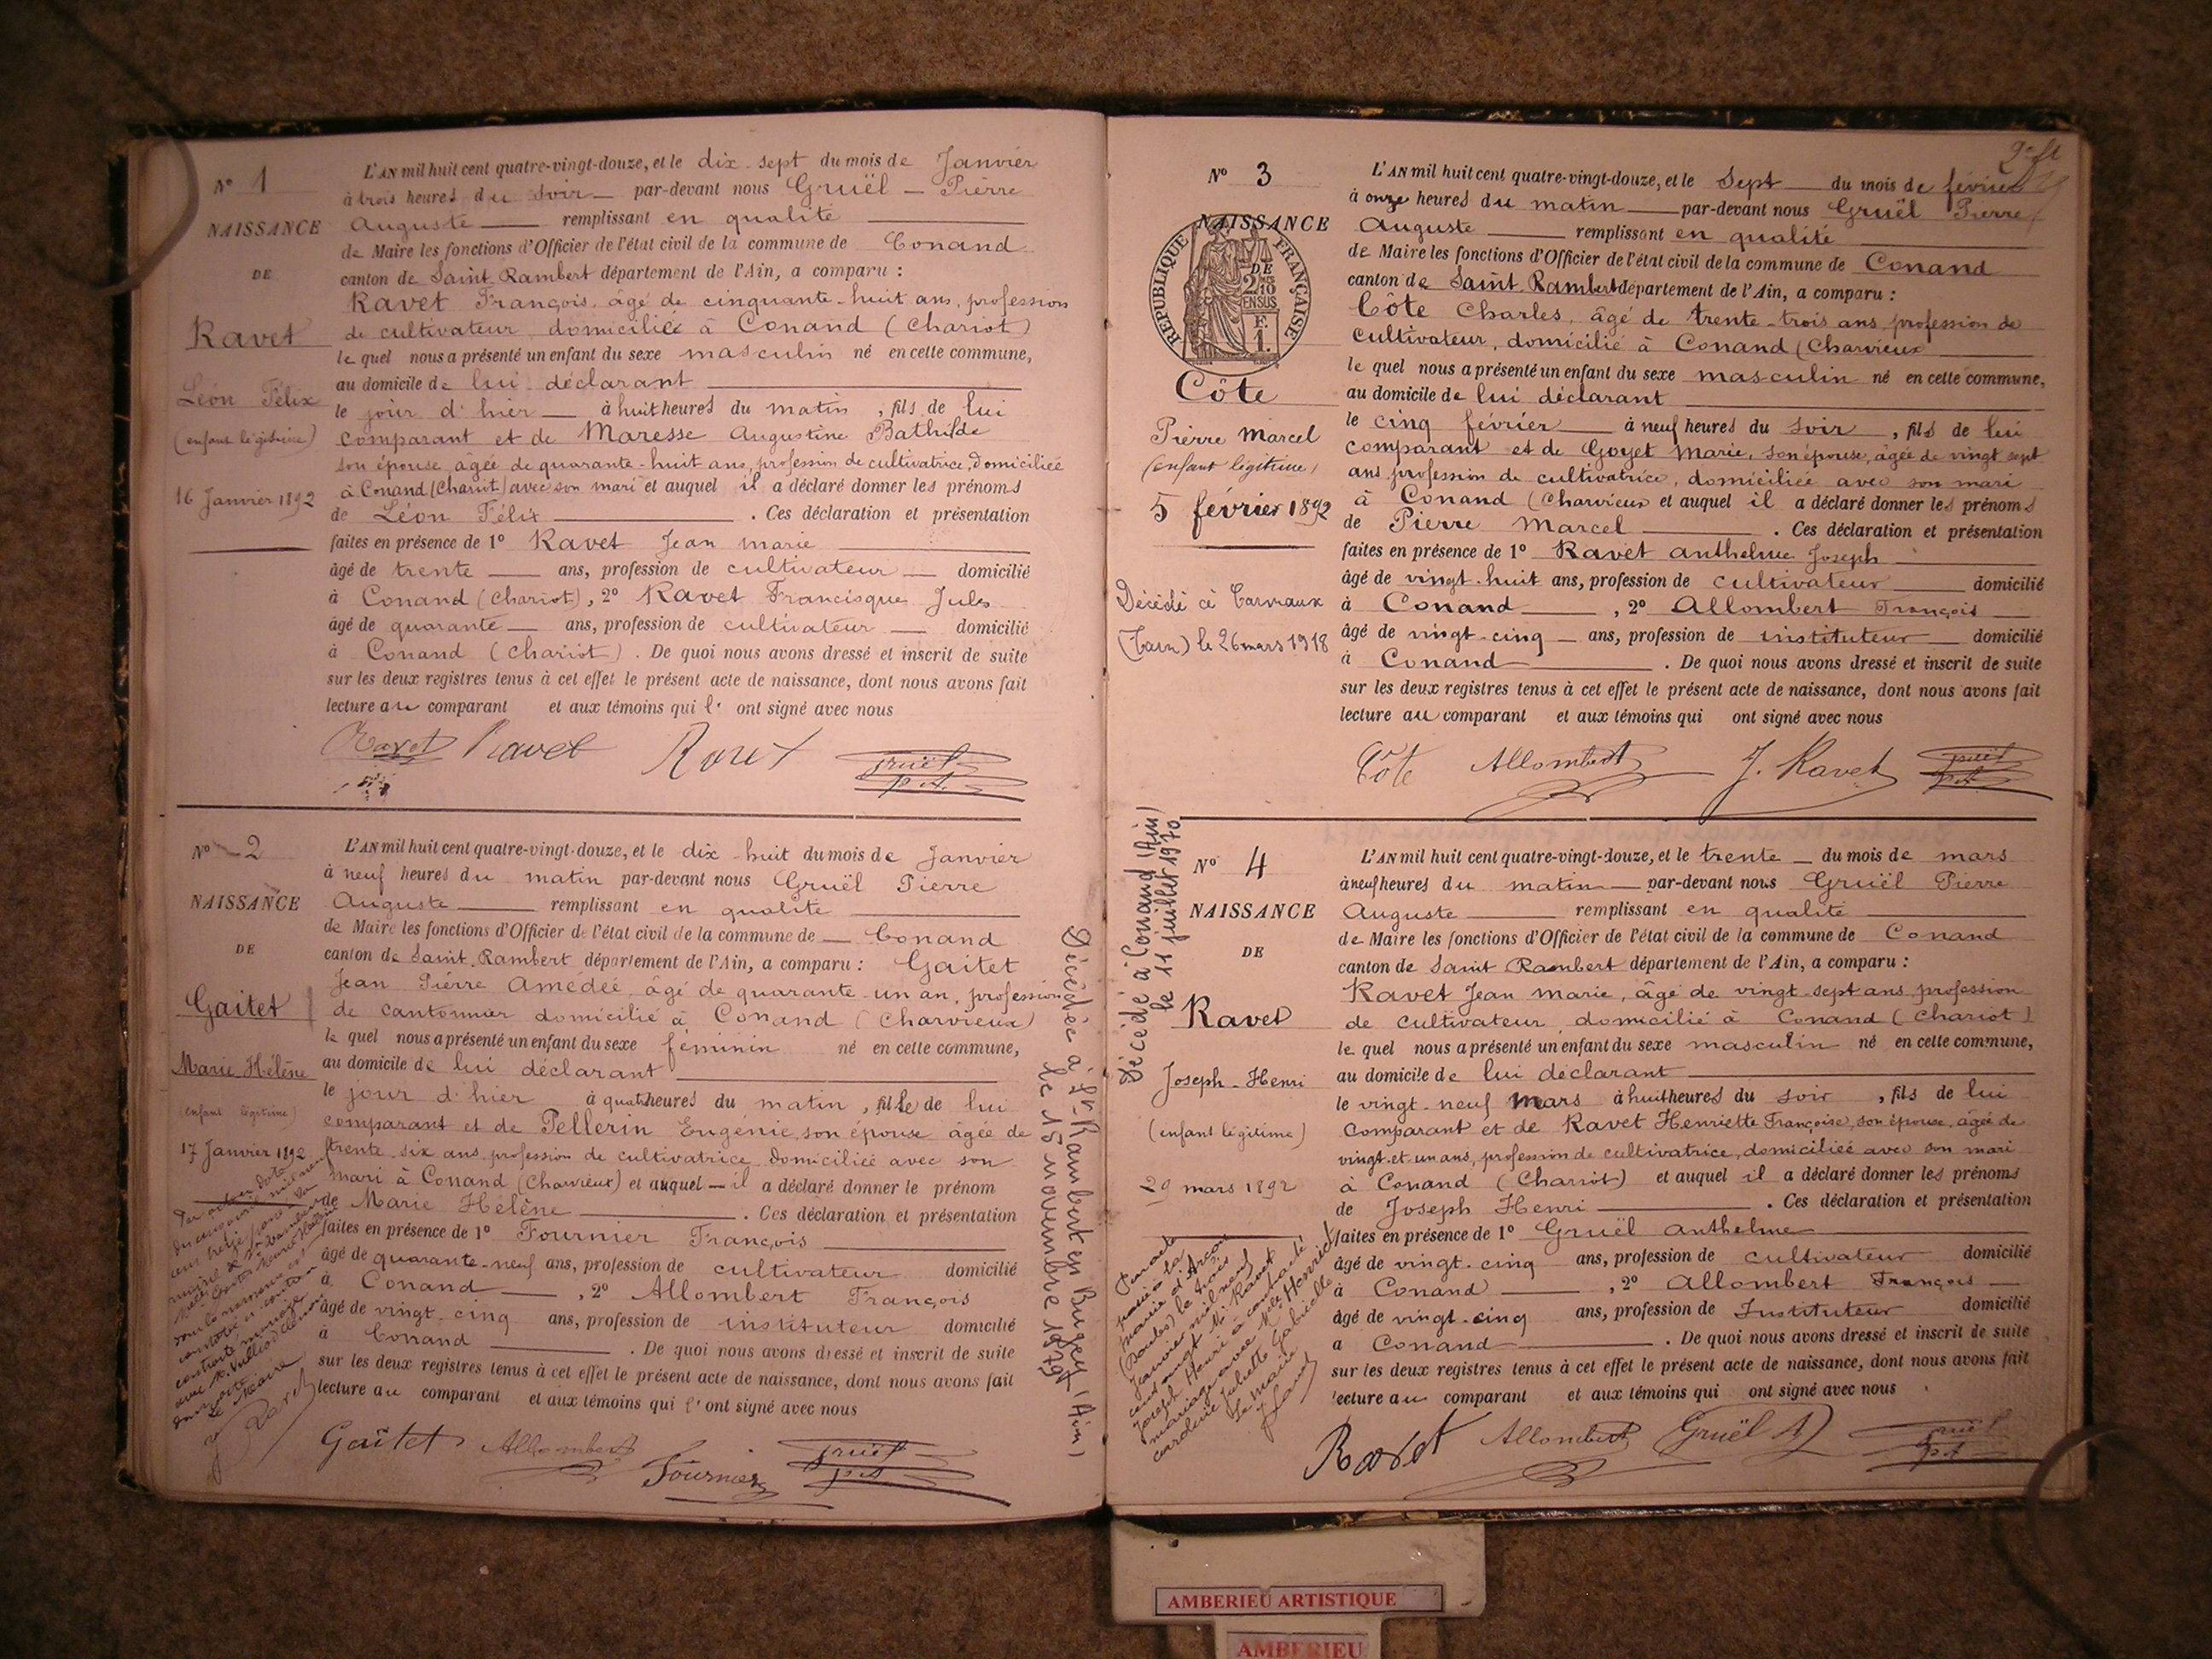 N° 1
NAISSANCE
DE
Ravet
Léon Félix
(enfant légitime)
16 Janvier 1892
L'AN mil huit cent quatre-vingt-douze, et le dix-sept du mois de Janvier
à trois heures du soir par-devant nous Gruël Pierre
Auguste remplissant en qualité
de Maire les fonctions d'Officier de l'état civil de la commune de Conand
canton de Saint Rambert département de l'Ain, a comparu :
Ravet François, âgé de cinquante-huit ans, profession
de cultivateur domicilié à Conand (Chariot)
lequel nous a présenté un enfant du sexe masculin né en cette commune,
au domicile de lui déclarant
le jour d'hier à huit heures du matin, fils de lui
comparant et de Maresse Augustine Bathilde
son épouse, âgée de quarante-huit ans, profession de cultivatrice, domiciliée
à Conand (Chariot) avec son mari et auquel il a déclaré donner les prénoms
de Léon Félix . Ces déclaration et présentation
faites en présence de 1° Ravet Jean marie
âgé de trente ans, profession de cultivateur domicilié
à Conand (Chariot), 2° Ravet Francisque Jules
âgé de quarante ans, profession de cultivateur domicilié
à Conand (Chariot). De quoi nous avons dressé et inscrit de suite
sur les deux registres tenus à cet effet le présent acte de naissance, dont nous avons fait
lecture au comparant et aux témoins qui l' ont signé avec nous
Ravet Ravet Ravet Gruël
P.A.
N° 2
NAISSANCE
DE
Gaitet
Marie Hélène
(enfant légitime)
17 Janvier 1892
L'AN mil huit cent quatre-vingt-douze, et le dix-huit du mois de Janvier
à neuf heures du matin par-devant nous Gruël Pierre
Auguste remplissant en qualité
de Maire les fonctions d'Officier de l'état civil de la commune de Conand
canton de Saint Rambert département de l'Ain, a comparu : Gaitet
Jean Pierre Amédée, âgé de quarante-un an, profession
de cantonnier domicilié à Conand (Charvieux)
lequel nous a présenté un enfant du sexe féminin né en cette commune,
au domicile de lui déclarant
le jour d'hier à quatre heures du matin, fille de lui
comparant et de Pellerin Eugénie, son épouse âgée de
trente six ans profession de cultivatrice domiciliée avec son
mari à Conand (Charvieux) et auquel il a déclaré donner le prénom
de Marie Hélène . Ces déclaration et présentation
faites en présence de 1° Fournier François
âgé de quarante-neuf ans, profession de cultivateur domicilié
à Conand , 2° Allombert François
âgé de vingt-cinq ans, profession de instituteur domicilié
à Conand . De quoi nous avons dressé et inscrit de suite
sur les deux registres tenus à cet effet le présent acte de naissance, dont nous avons fait
lecture au comparant et aux témoins qui l' ont signé avec nous
Gaitet Allombert Fournier Gruël
P.A.
Décédée à St-Rambert en Bugey (Ain)
le 15 novembre 1979
N° 3
NAISSANCE
DE
REPUBLIQUE FRANÇAISE
2/10
EN SUS
F.
1.
Côte
Pierre Marcel
(enfant légitime)
5 février 1892
Décédé à Carmaux
(Tarn) le 26 mars 1918
L'AN mil huit cent quatre-vingt-douze, et le Sept du mois de février
à onze heures du matin par-devant nous Gruël Pierre
Auguste remplissant en qualité
de Maire les fonctions d'Officier de l'état civil de la commune de Conand
canton de Saint Rambert département de l'Ain, a comparu :
Côte Charles, âgé de trente-trois ans, profession de
cultivateur, domicilié à Conand (Charvieux
lequel nous a présenté un enfant du sexe masculin né en cette commune,
au domicile de lui déclarant
le cinq février à neuf heures du soir, fils de lui
comparant et de Goyet Marie, son épouse, âgée de vingt sept
ans profession de cultivatrice, domiciliée avec son mari
à Conand (Charvieux et auquel il a déclaré donner les prénoms
de Pierre Marcel . Ces déclaration et présentation
faites en présence de 1° Ravet anthelme Joseph
âgé de vingt-huit ans, profession de cultivateur domicilié
à Conand , 2° Allombert François
âgé de vingt-cinq ans, profession de instituteur domicilié
à Conand . De quoi nous avons dressé et inscrit de suite
sur les deux registres tenus à cet effet le présent acte de naissance, dont nous avons fait
lecture au comparant et aux témoins qui ont signé avec nous
Côte Allombert J. Ravet Gruël
P.A.
N° 4
NAISSANCE
DE
Ravet
Joseph-Henri
(enfant légitime)
29 mars 1892
Décédé à Conand (Ain)
le 11 juillet 1970
L'AN mil huit cent quatre-vingt-douze, et le trente du mois de mars
à neuf heures du matin par-devant nous Gruël Pierre
Auguste remplissant en qualité
de Maire les fonctions d'Officier de l'état civil de la commune de Conand
canton de Saint Rambert département de l'Ain, a comparu :
Ravet Jean marie, âgé de vingt-sept ans profession
de cultivateur, domicilié à Conand (Chariot)
lequel nous a présenté un enfant du sexe masculin né en cette commune,
au domicile de lui déclarant
le vingt-neuf mars à huit heures du soir, fils de lui
comparant et de Ravet Henriette Françoise, son épouse, âgée de
vingt-et-un ans, profession de cultivatrice, domiciliée avec son mari
à Conand (Chariot) et auquel il a déclaré donner les prénoms
de Joseph Henri . Ces déclaration et présentation
faites en présence de 1° Gruël anthelme
âgé de vingt-cinq ans, profession de cultivateur domicilié
à Conand , 2° Allombert François
âgé de vingt-cinq ans, profession de Instituteur domicilié
a Conand . De quoi nous avons dressé et inscrit de suite
sur les deux registres tenus à cet effet le présent acte de naissance, dont nous avons fait
lecture au comparant et aux témoins qui ont signé avec nous
Ravet Allombert Gruël A Gruël
P.A.
AMBERIEU ARTISTIQUE
AMBERIEU